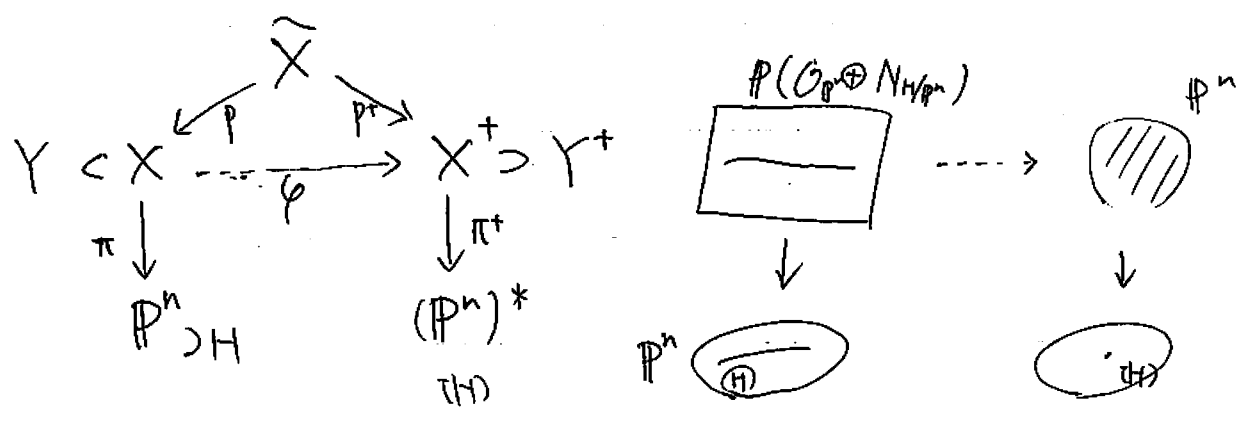 X̃
p p⁺
Y ⊂ X ⇢ X⁺ ⊃ Y⁺
φ
π π⁺
ℙⁿ ⊃ H (ℙⁿ)*
(H)
ℙ(𝒪_ℙⁿ ⊕ N_H/ℙⁿ) ℙⁿ
ℙⁿ (H) (H)